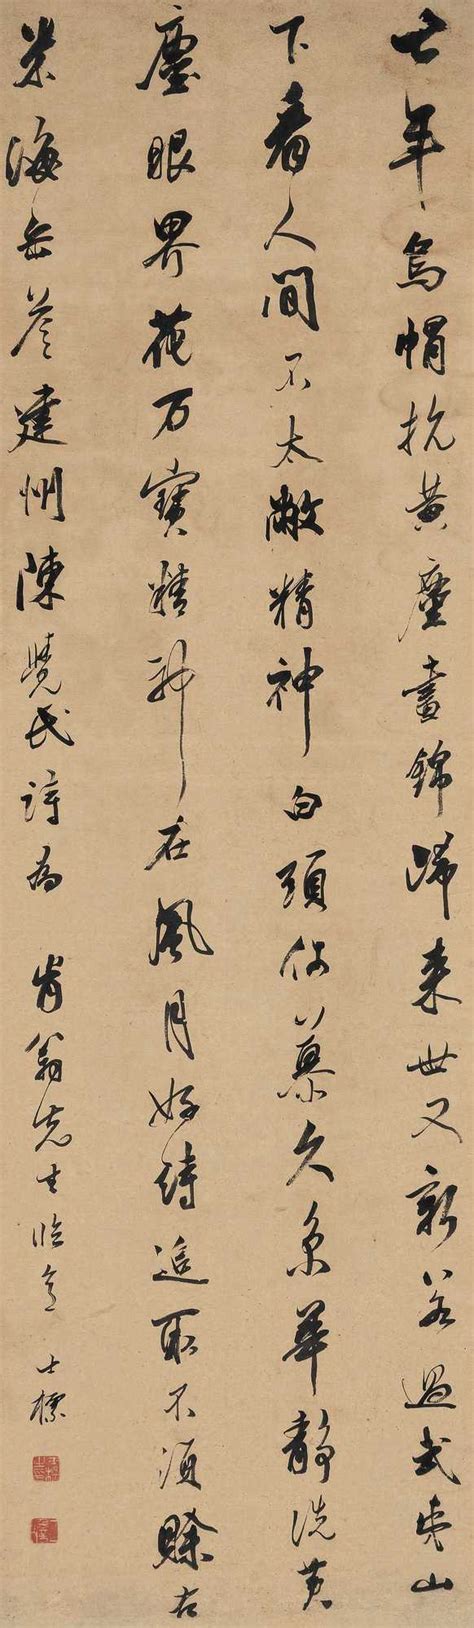 七年烏帽抗黃塵晝錦歸來世又新若過武夷山
下看人間不太敝精神白頭何慕久京華靜洗黃
塵眼界花万寶精神在風月好詩追取不須賒右
米海岳答建州陳覺民詩為 肯翁先生臨意 士標